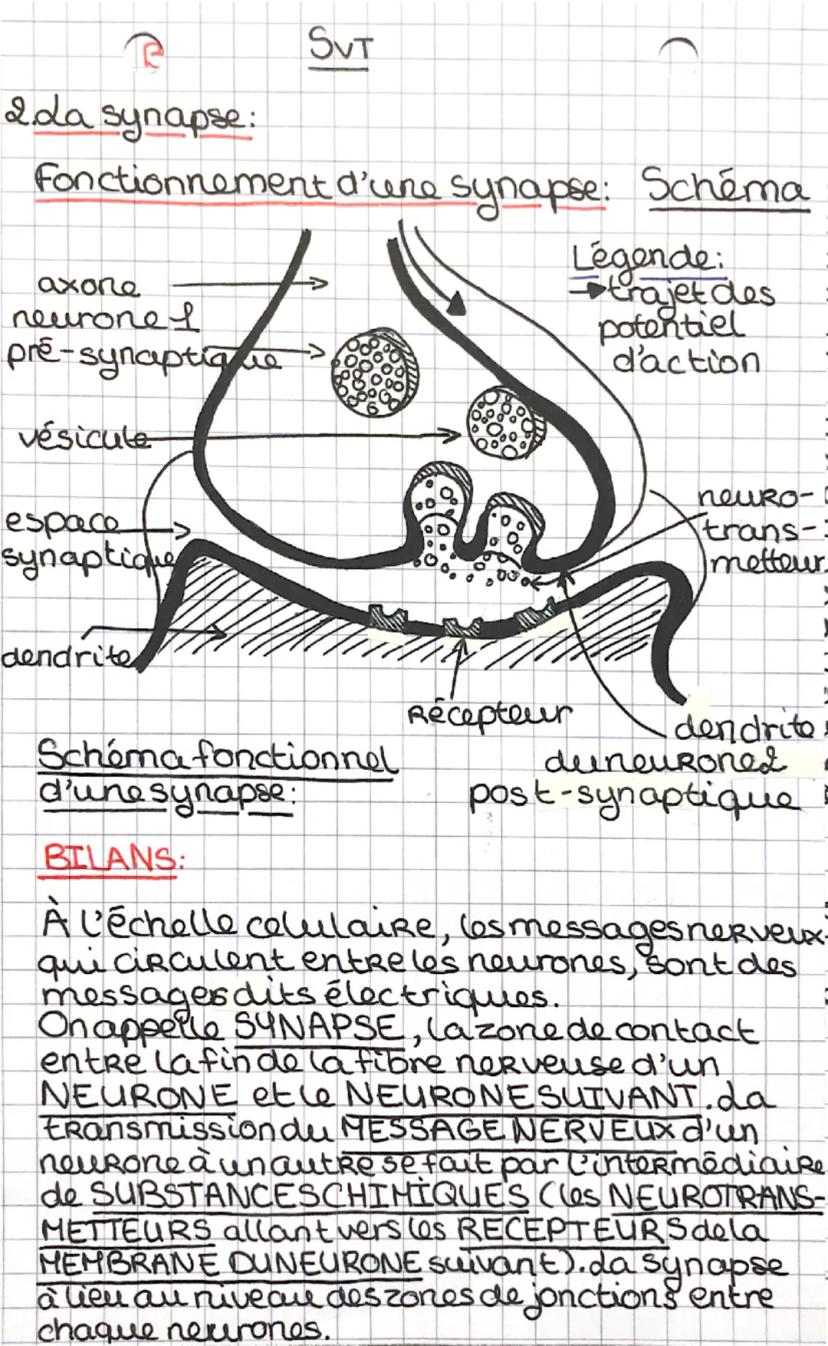 SVT
2. La synapse:
Fonctionnement d'une synapse: Schéma
Légende:
→ trajet des
potentiel
d'action
axone
neurone 1
pré-synaptique
vésicule
espace
synaptique
dendrite
neuro-
trans-
metteur
Récepteur
dendrite
du neurone 2
post-synaptique
Schéma fonctionnel
d'une synapse:
BILANS:
À l'échelle celulaire, les messages nerveux
qui circulent entre les neurones, sont des
messages dits électriques.
On appelle SYNAPSE, la zone de contact
entre la fin de la fibre nerveuse d'un
NEURONE et le NEURONE SUIVANT. La
transmission du MESSAGE NERVEUX d'un
neurone à un autre se fait par l'intermédiaire
de SUBSTANCES CHIMIQUES (les NEUROTRANS-
METTEURS allant vers les RECEPTEURS de la
MEMBRANE DU NEURONE suivant). La synapse
à lieu au niveau des zones de jonctions entre
chaque neurones.